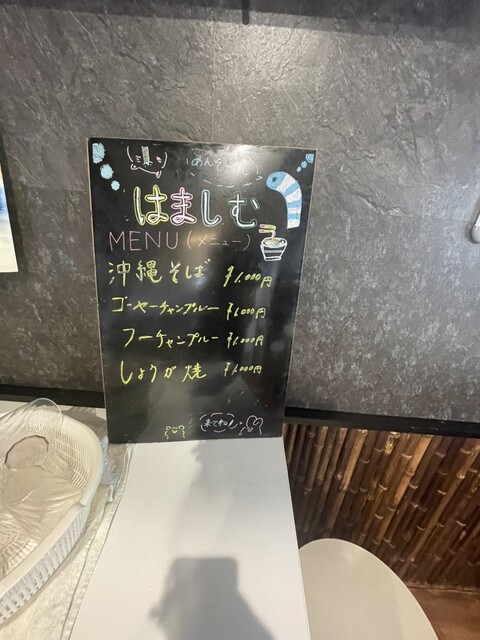 はましむ
MENU (メニュー)
沖縄そば ¥1,000円
ゴーヤーチャンプルー ¥1,000円
フーチャンプルー ¥1,000円
しょうが焼 ¥1,000円